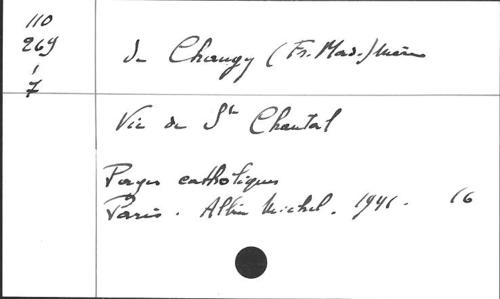 110
269
1
7
de Changy (Fr. Mad.) Mère
Vie de Ste Chantal
Pages catholiques
Paris. Albin Michel. 1941. 16